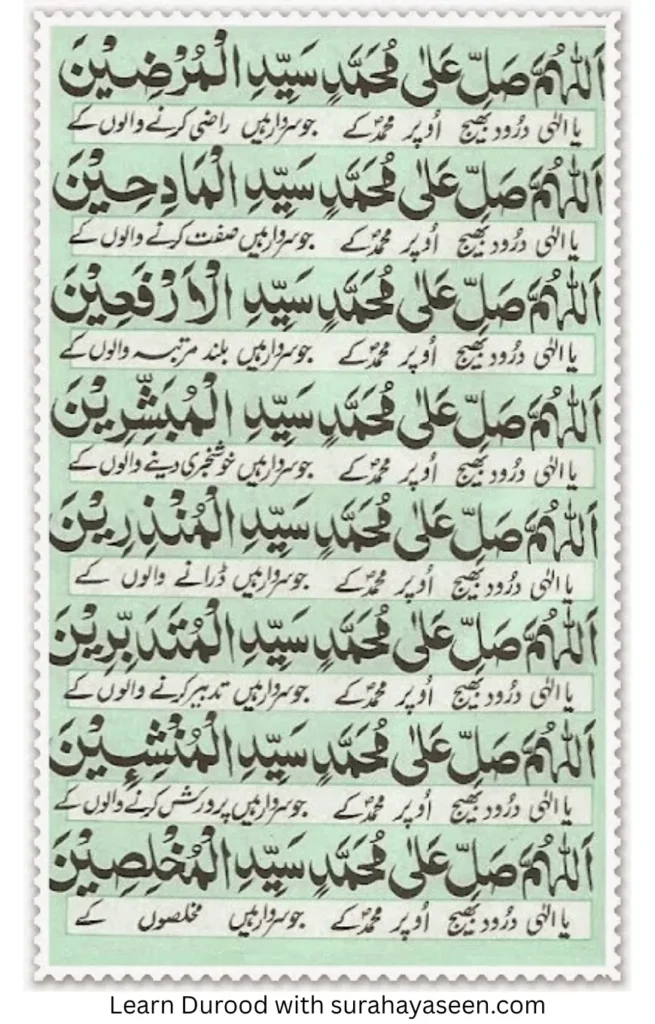 اَللّٰهُمَّ صَلِّ عَلٰى مُحَمَّدٍ سَيِّدِ الْمُرْضِيْنَ
یا الٰہی درُود بھیج اُوپر محمدؐ کے جو سردار ہیں راضی کرنے والوں کے
اَللّٰهُمَّ صَلِّ عَلٰى مُحَمَّدٍ سَيِّدِ الْمَادِحِيْنَ
یا الٰہی درُود بھیج اُوپر محمدؐ کے جو سردار ہیں صفت کرنے والوں کے
اَللّٰهُمَّ صَلِّ عَلٰى مُحَمَّدٍ سَيِّدِ الْاَرْفَعِيْنَ
یا الٰہی درُود بھیج اُوپر محمدؐ کے جو سردار ہیں بلند مرتبہ والوں کے
اَللّٰهُمَّ صَلِّ عَلٰى مُحَمَّدٍ سَيِّدِ الْمُبَشِّرِيْنَ
یا الٰہی درُود بھیج اُوپر محمدؐ کے جو سردار ہیں خوشخبری دینے والوں کے
اَللّٰهُمَّ صَلِّ عَلٰى مُحَمَّدٍ سَيِّدِ الْمُنْذِرِيْنَ
یا الٰہی درُود بھیج اُوپر محمدؐ کے جو سردار ہیں ڈرانے والوں کے
اَللّٰهُمَّ صَلِّ عَلٰى مُحَمَّدٍ سَيِّدِ الْمُتَدَبِّرِيْنَ
یا الٰہی درُود بھیج اُوپر محمدؐ کے جو سردار ہیں تدبیر کرنے والوں کے
اَللّٰهُمَّ صَلِّ عَلٰى مُحَمَّدٍ سَيِّدِ الْمُنْشِئِيْنَ
یا الٰہی درُود بھیج اُوپر محمدؐ کے جو سردار ہیں پرورش کرنے والوں کے
اَللّٰهُمَّ صَلِّ عَلٰى مُحَمَّدٍ سَيِّدِ الْمُخْلِصِيْنَ
یا الٰہی درُود بھیج اُوپر محمدؐ کے جو سردار ہیں مخلصوں کے
Learn Durood with surahayaseen.com